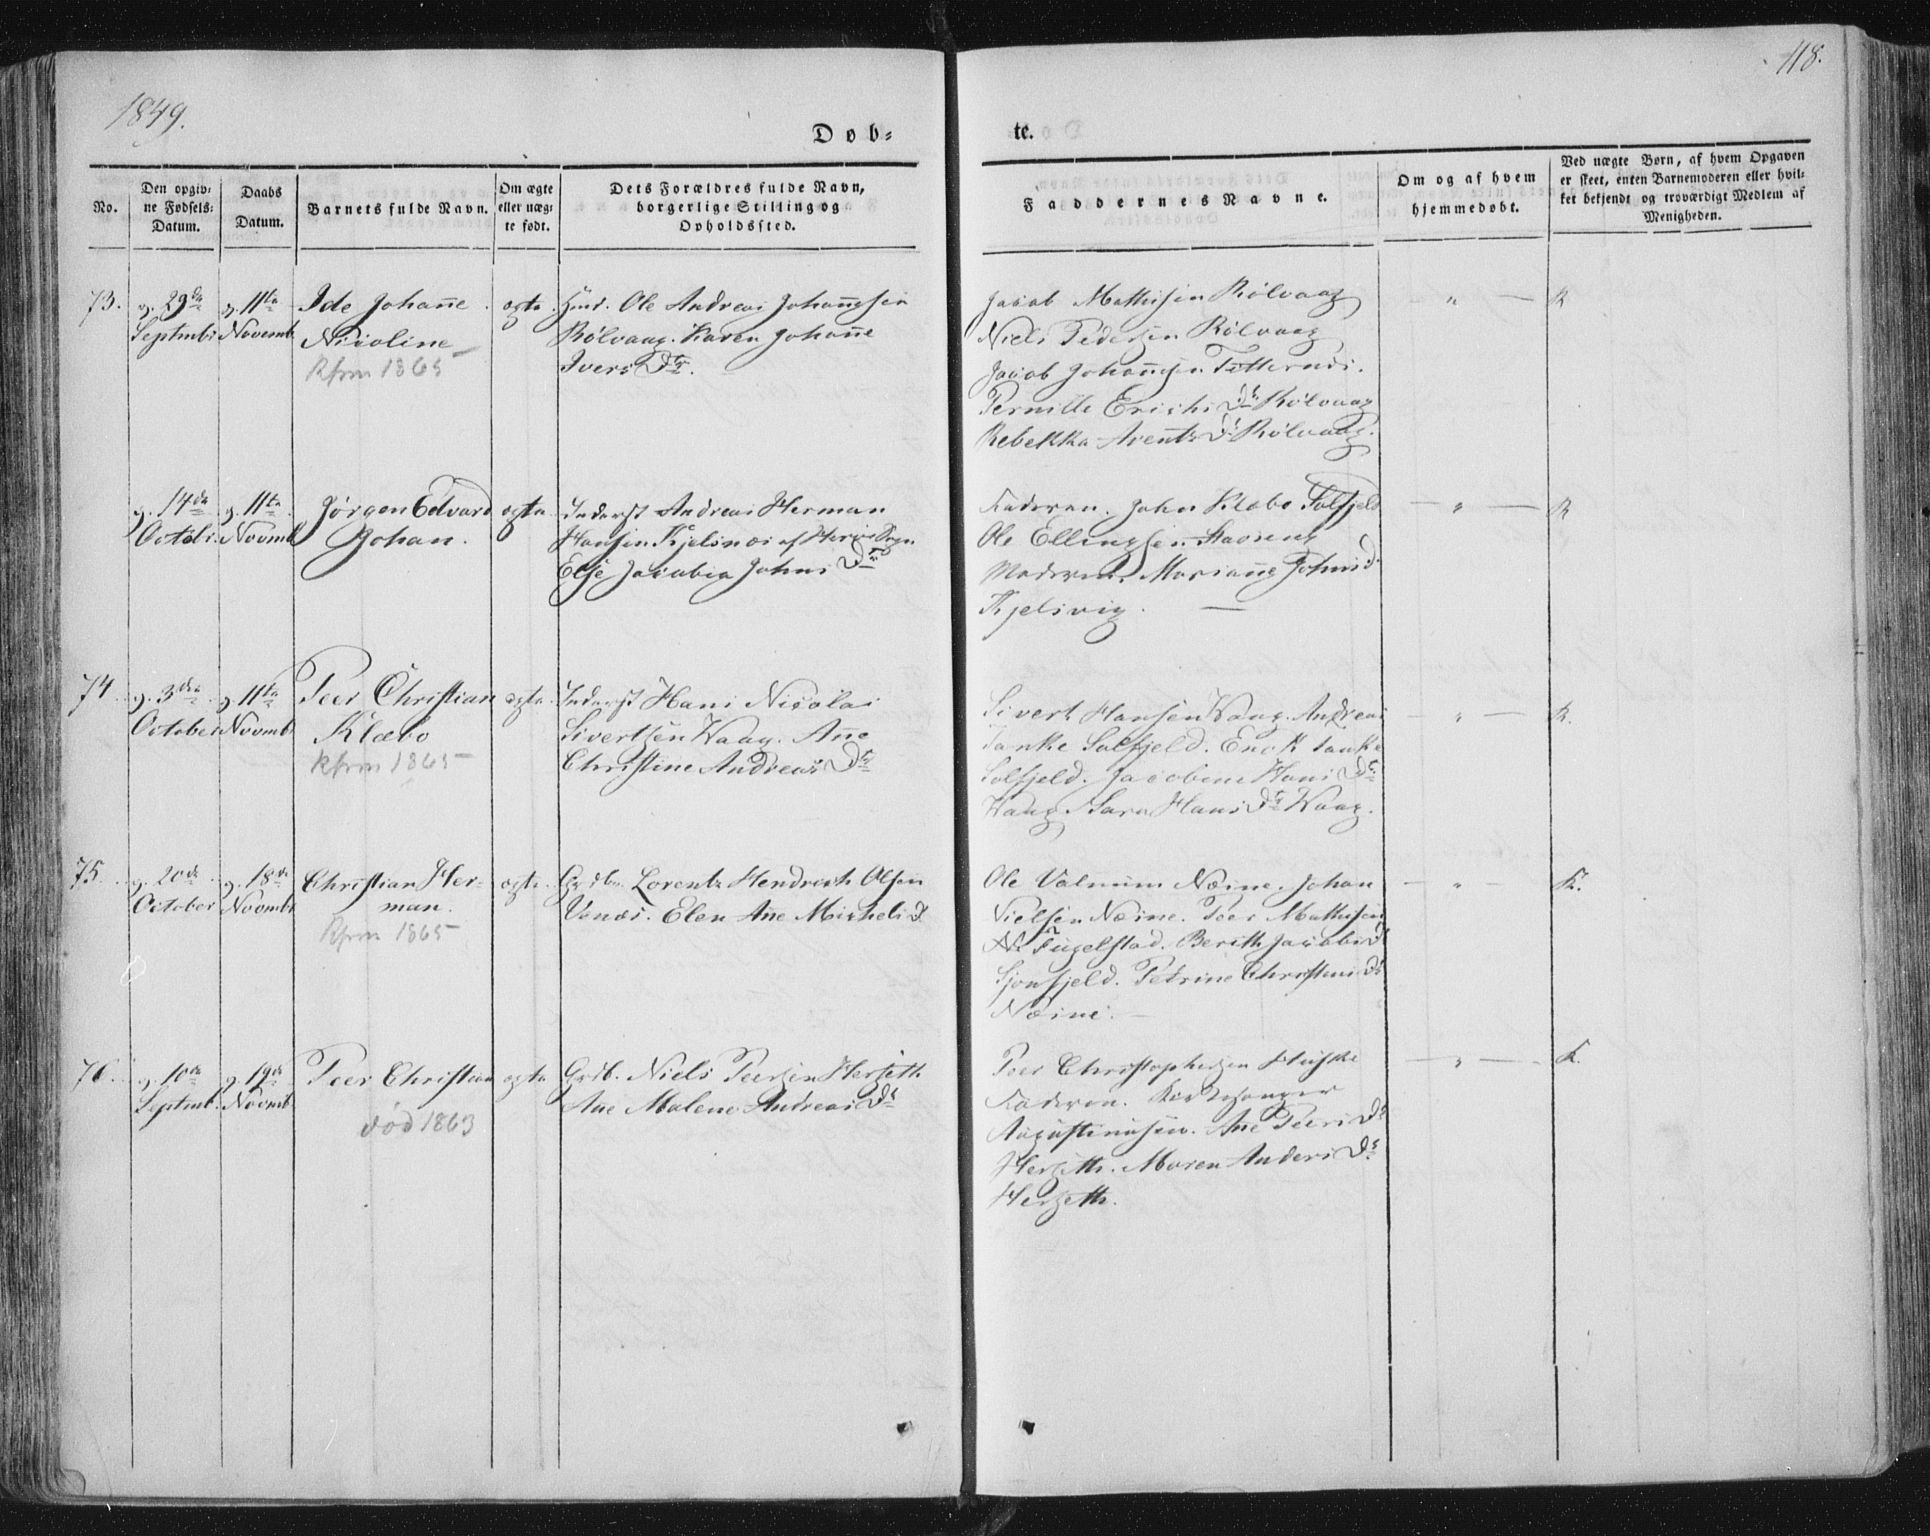 1849.
118.
Døb-
te.
No.
Den opgiv-
ne Fødsels-
Datum.
Daabs
Datum.
Barnets fulde Navn.
Om ægte
eller uæg-
te født.
Dets Forældres fulde Navn,
borgerlige Stilling og
Opholdssted.
Faddernes Navne.
Om og af hvem
hjemmedøbt.
Ved uægte Børn, af hvem Opgaven
er skeet, enten Barnemoderen eller hvil-
ket bekjendt og troværdigt Medlem af
Menigheden.
73.
29de
Septmbr
11te
Novemb
Ide Johan̄e
Nicoline
Kfrm 1865
ægte
Ole Andreas Johan̄esen
Rølvaag. Karen Johan̄e
Ivers Dtr.
Jacob Mathisen Rølvaag
Niels Pedersen Rølvaag
Jacob Johan̄esen
Pernille Erichs Dtr Rølvaag
Rebekka Arents Dtr Rølvaag.
"
K
14de
Octobr.
11te
Novmb
Jørgen Edvard
Johan.
ægte
Inderst Andreas Herman
Hansen Kjelsnæs af Herøe Sogn
Else Jacobia Johns Dtr
Faderen. John Klæbo Solfjeld
Ole Ellingsen
Moderen. Marian̄e Johns d.
Kjelsvig.
"
K
74
3die
October
11te
Novmb
Peer Christian
Klæbo
Kfrm 1865
ægte
Inderst Hans Nicolai
Sivertsen Waag. Ane
Christine Andreas Dtr
Sivert Hansen Waag. Andreas
Tanke Solfjeld. Enok Tanke
Solfjeld. Jacobine Hans Dtr
Waag. Sara Hans Dtr Waag.
"
K.
75
20de
October
18de
Novmbr
Christian Her-
man.
Kfrm 1865
ægte
Lorentz Hendrich Olsen
Venæs. Elen An̄e Michels D.
Ole Valnum Næsne. Johan
Nielsen Næsne. Peer Mathisen
Fugelstad. Berith Jacobs D
Sjonfjeld. Petrine Christens Dtr
Næsne.
"
K.
76.
10de
Septmb.
19de
Novmb
Peer Christian
død 1863
ægte
Grdb. Niels Peersen Herseth
Ane Malene Andreas Dtr
Peer Christophersen
Faderen. Kirkesanger
Augustinusen. Ane Peers Dtr
Herseth. Maren Anders Dtr
Herseth.
"
K.